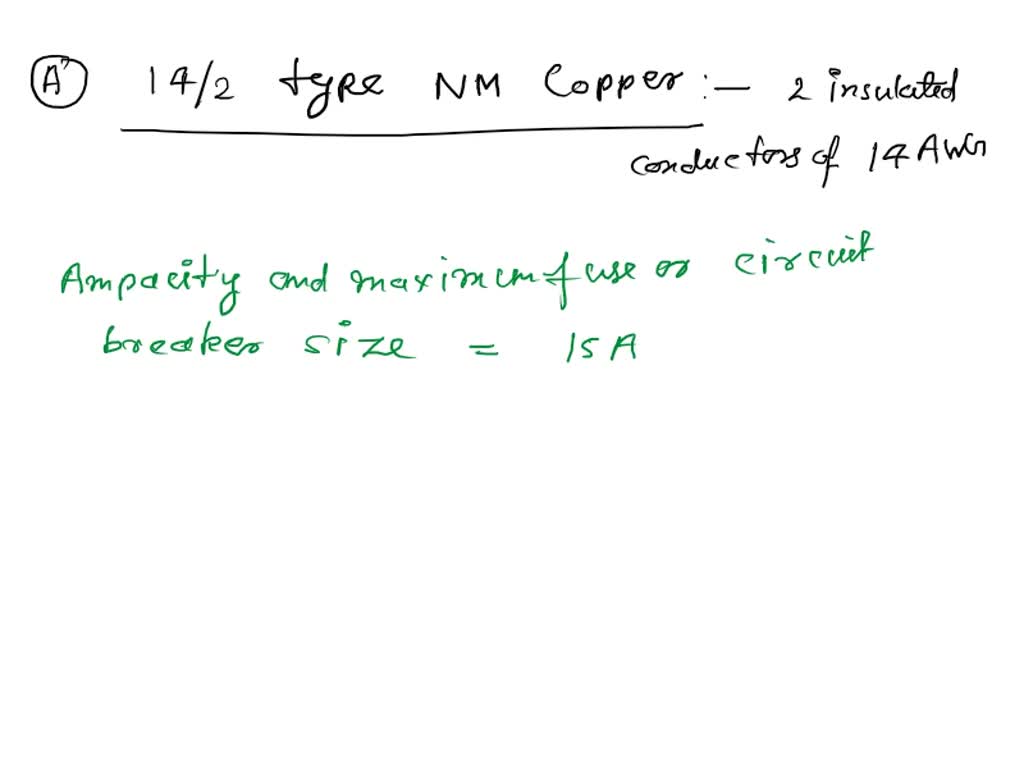 A) 14/2 type NM Copper :- 2 insulated
conductors of 14 AWG
Ampacity and maximum fuse or circuit
breaker size = 15A